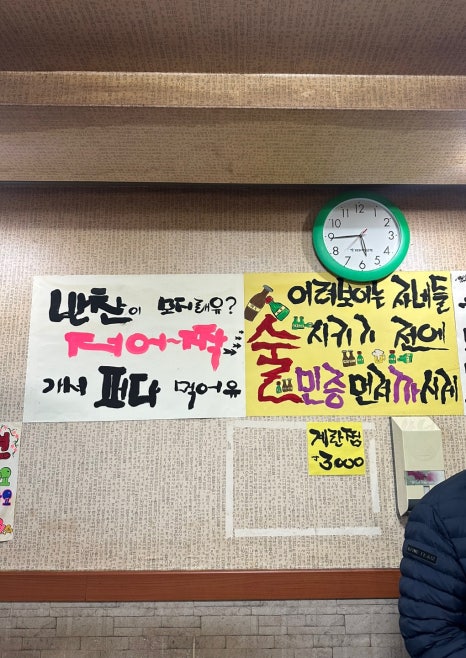 반찬이 모자래유?
저어~짝
가서 퍼다 먹어유
어려보이는 자네들
술시키기 전에
민증먼저까시게
계란찜
₩3000
12
1
2
3
4
5
6
7
8
9
10
11